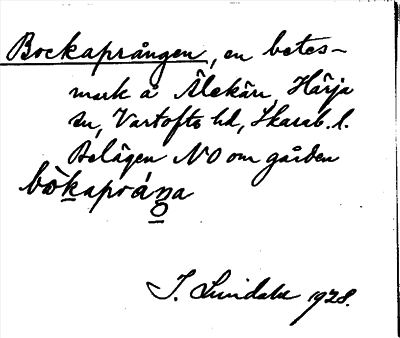 Bockaprången, en betes-
mark å Älekärr, Härja
sn, Vartofta hd, Skarab. l.
Belägen NO om gården
bòkapråŋa
I. Lundahl 1928.